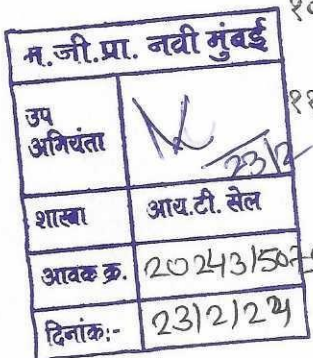 म.जी.प्रा. नवी मुंबई
उप
अभियंता
23/2
शाखा आय.टी. सेल
आवक क्र. 202431507
दिनांक:- 23/2/24